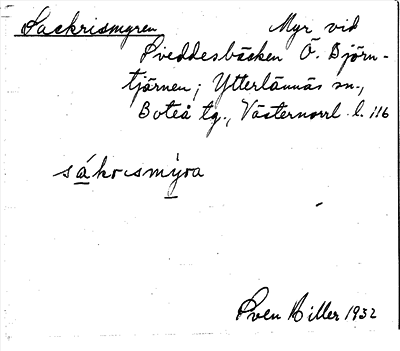 Sackrismyren Myr vid
Sveddesbäcken Ö. Björn-
tjärnen; Ytterlännäs sn.,
Boteå tg., Västernorrl. l. 116
sákrismýra
Sven Hiller 1932